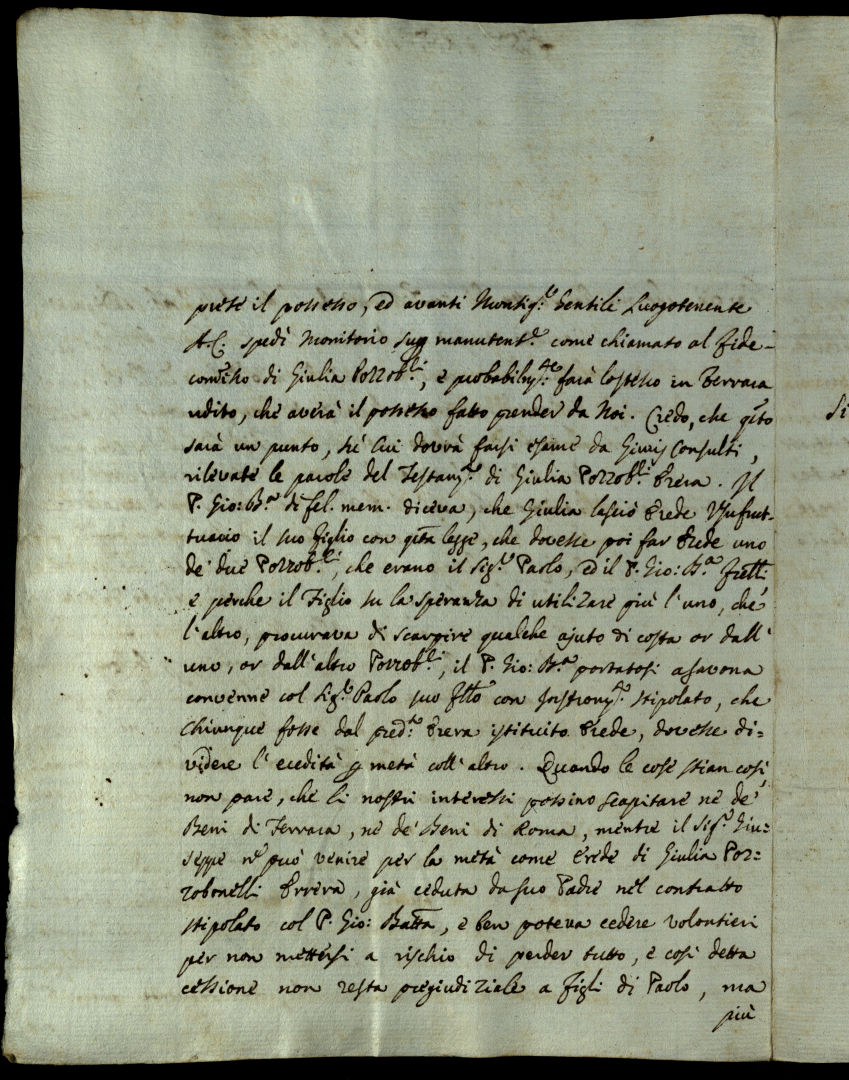 prese il possesso, ed avanti Monsig.re Gentili Luogotenente
A.C. spedì monitorio sup manutent.e come chiamato al fide-
comisso di Giulia Pozzob.li, e probabilm.te farà lo stesso in Ferrara
udito, che averà il possesso fatto prender da Noi. Credo, che q̃sto
sarà un punto, sù cui dovrà farsi esame da Giuris Consulti,
rilevate le parole del Testam.to di Giulia Pozzob.li Frera. Il
P. Gio: B.a di fel. mem. diceva, che Giulia lasciò Erede Usufrut-
tuario il suo figlio con q̃sta legge, che dovesse poi far Erede uno
de' due Pozzob.li, che erano il Sig.r Paolo, ed il P. Gio: B.a frẽlli
e perche il Figlio su la speranza di utilizare più l'uno, che
l'altro, procurava di scarpire qualche ajuto di costa or dall'
uno, or dall'altro Pozzob.li, il P. Gio: B.a portatosi a Savona
convenne col Sig.r Paolo suo frẽllo con Instrom.to stipolato, che
chiunque fosse dal pred.to Frera istituito Erede, dovesse di=
videre l'eredità p metà coll'altro. Quando le cose stian così,
non pare, che li nostri interessi possino scapitare nè de'
Beni di Ferrara, nè de' Beni di Roma, mentre il Sig.r Giu=
seppe nõ può venire per la metà come Erede di Giulia Poz=
zobonelli Frrera, già ceduta da suo Padre nel contratto
stipolato col P. Gio: Batt̃a, e ben poteva cedere volontieri
per non mettersi a rischio di perder tutto, e così detta
cessione non resta pregiudiziale a figli di Paolo, ma
più
Si